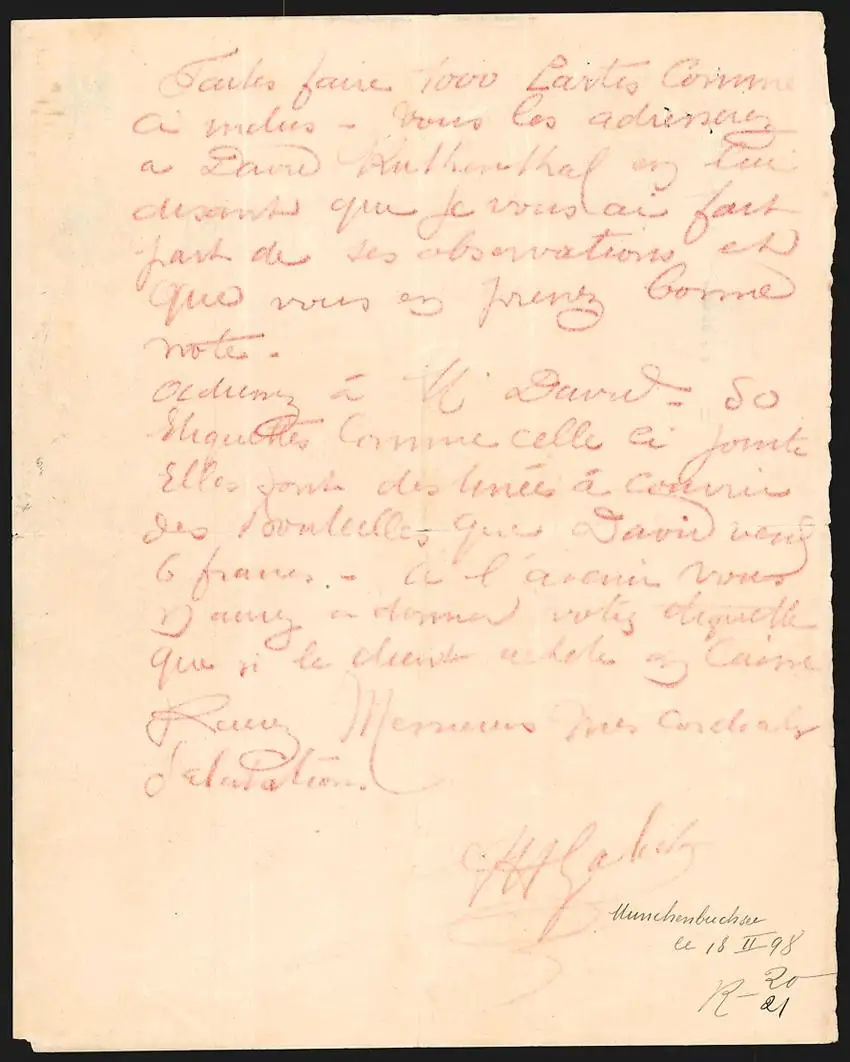 Faites faire 1000 Cartes Comme
Ci inclus - Vous les adresserez
a David Ruthenthal en lui
disant que je vous ai fait
part de ses observations et
que vous en prenez bonne
note.
adressez à M David - 50
Etiquettes Comme celle ci jointe
Elles sont destinées à couvrir
des Bouteilles que David vend
6 francs. - a l'avenir vous
n'aurez a donner votre etiquette
que si le client achete en Caisse
Recevez Messieurs mes cordiales
Salutations
Munchenbuchsee
le 18 II 98
R - 20
21